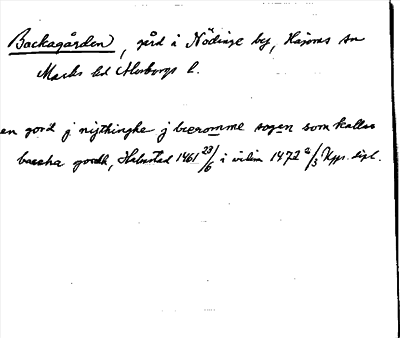 Backagården, gård i Nödinge by, Hajoms sn
Marks hd Älvsborgs l.
en gord j nijthinghe j bæromme sogen som kallas
baccha gordh, Halmstad 1461 23/6 i vidim 1472 2/3 Upps. dipl.